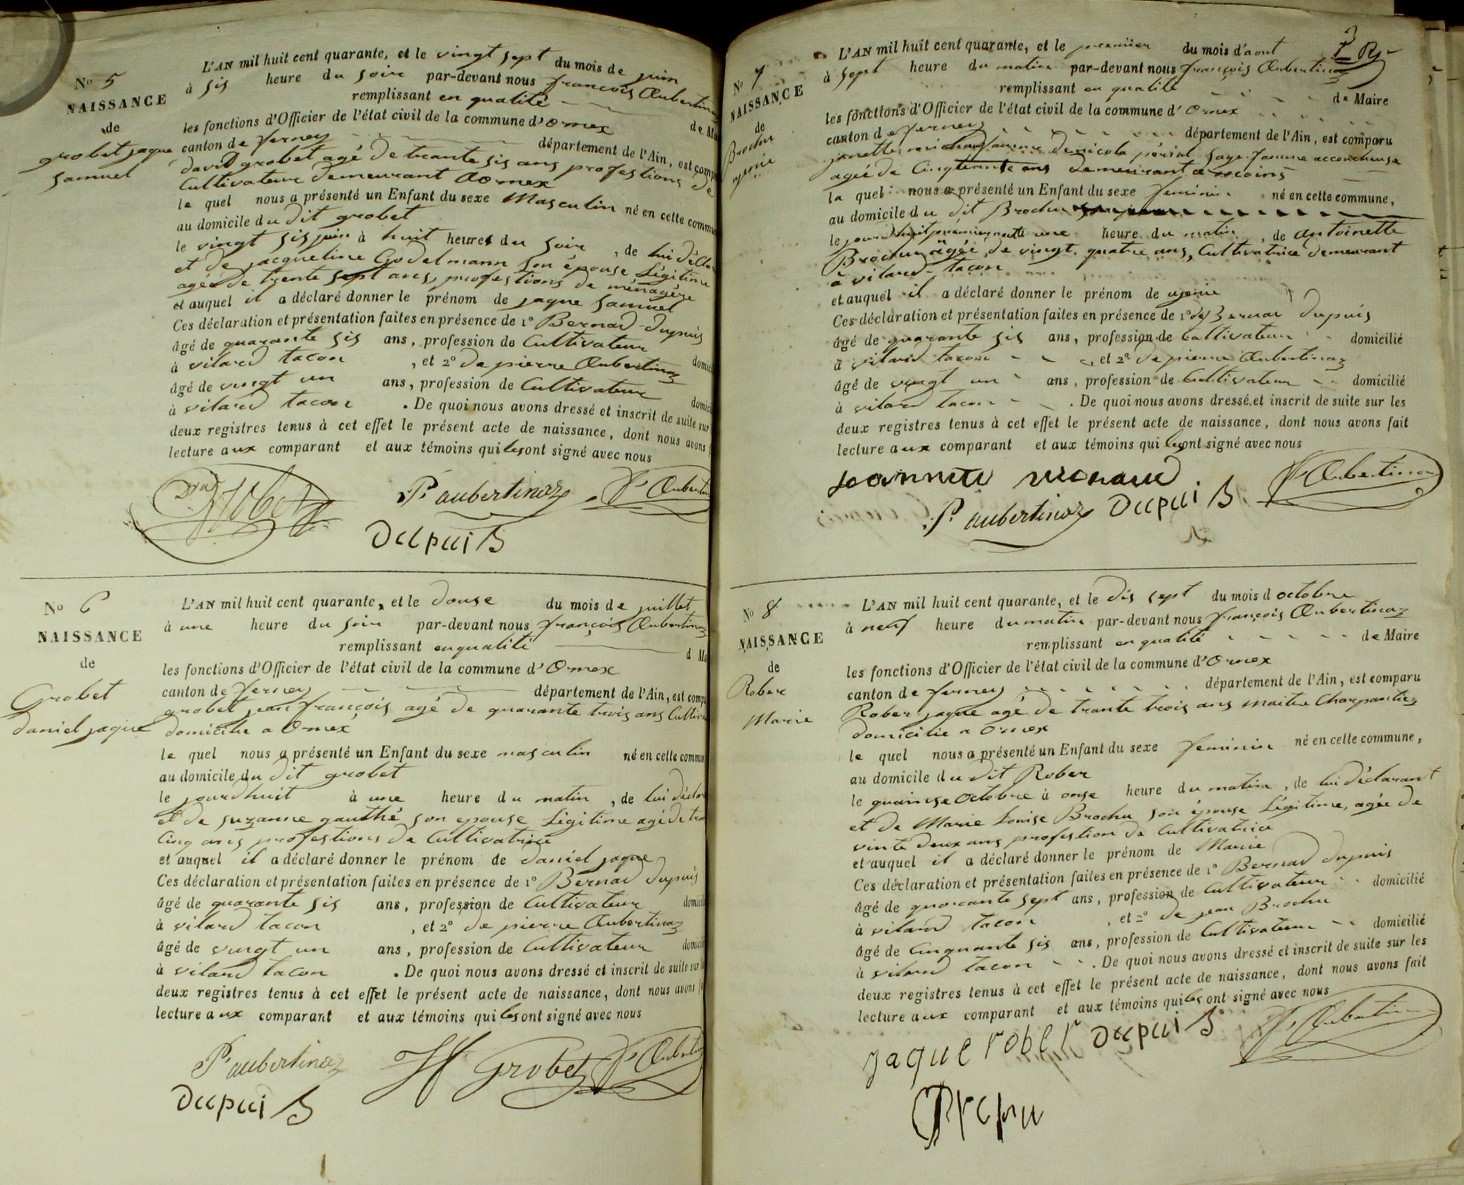 N° 5
NAISSANCE
de
grobet jaque
samuel
L'AN mil huit cent quarante, et le vingt sept du mois de juin
à sis heure du soir par-devant nous françois Aubertinaz
remplissant en qualité
les fonctions d'Officier de l'état civil de la commune d'Ornex
canton de ferney département de l'Ain, est comp
david grobet agé de trante sis ans professions de
Cultivateur demeurant a ornex
le quel nous a présenté un Enfant du sexe Masculin né en cette commu
au domicile du dit grobet
le vingt sis juin à huit heures du soir, de lui décla
et de jacqueline Godelmann son épouse Légitime
agée de trente sept ans, professions de ménagère
et auquel il a déclaré donner le prénom de jaque samuel
Ces déclaration et présentation faites en présence de 1° Bernad dupuis
âgé de quarante sis ans, profession de Cultivateur
à vilard tacon, et 2° de pierre Aubertinaz
âgé de vingt un ans, profession de Cultivateur
à vilard tacon. De quoi nous avons dressé et inscrit de suite sur
deux registres tenus à cet effet le présent acte de naissance, dont nous avons
lecture aux comparant et aux témoins qui les ont signé avec nous
P. aubertinaz
Dupuis B
N° 6
NAISSANCE
de
Grobet
daniel jaque
L'AN mil huit cent quarante, et le douse du mois de juillet
à une heure du soir par-devant nous françois Aubertinaz
remplissant en qualité
les fonctions d'Officier de l'état civil de la commune d'Ornex
canton de ferney département de l'Ain, est comp
grobet jean françois agé de quarante trois ans Cultiv
domicilié a Ornex
le quel nous a présenté un Enfant du sexe masculin né en cette commun
au domicile du dit grobet
le jourdhuit à une heure du matin, de lui décla
et de suzanne gauthé son epouse Légitime agé de tra
Cinq ans professions de Cultivatrice
et auquel il a déclaré donner le prénom de daniel jaque
Ces déclaration et présentation faites en présence de 1° Bernad dupuis
âgé de quarante sis ans, profession de Cultivateur
à vilard tacon, et 2° de pierre Aubertinaz
âgé de vingt un ans, profession de Cultivateur
à vilard tacon. De quoi nous avons dressé et inscrit de suite sur
deux registres tenus à cet effet le présent acte de naissance, dont nous avons
lecture aux comparant et aux témoins qui les ont signé avec nous
P. aubertinaz Grobet
Dupuis B
N° 7
NAISSANCE
de
Brochu
L'AN mil huit cent quarante, et le premier du mois d'aout
à sept heure du matin par-devant nous françois Aubertinaz
remplissant en qualité de Maire
les fonctions d'Officier de l'état civil de la commune d'Ornex
canton de ferney département de l'Ain, est comparu
janette michaud femme de nicola périal, sage-famme accoucheuse
agée de Cinquante ans demeurant a moëns
la quel nous a présenté un Enfant du sexe feminin né en cette commune,
au domicile du dit Brochu
le jourdhuit premier aout à une heure du matin, de antoinette
Brochu agée de vingt quatre ans, Cultivatrice demeurant
à vilard tacon
et auquel il a déclaré donner le prénom de
Ces déclaration et présentation faites en présence de 1° de Bernar dupuis
âgé de quarante sis ans, profession de Cultivateur domicilié
à vilard tacon, et 2° de pierre Aubertinaz
âgé de vingt un ans, profession de Cultivateur domicilié
à vilard tacon. De quoi nous avons dressé et inscrit de suite sur les
deux registres tenus à cet effet le présent acte de naissance, dont nous avons fait
lecture aux comparant et aux témoins qui les ont signé avec nous
Joannete michaud
P. aubertinaz Dupuis B
N° 8
NAISSANCE
de
Rober
Marie
L'AN mil huit cent quarante, et le dis sept du mois d octobre
à neuf heure du matin par-devant nous françois Aubertinaz
remplissant en qualité de Maire
les fonctions d'Officier de l'état civil de la commune d'Ornex
canton de ferney département de l'Ain, est comparu
Rober jaque agé de trante trois ans maitre Charpantier
domicilié a Ornex
le quel nous a présenté un Enfant du sexe feminin né en cette commune,
au domicile du dit Rober
le quainse octobre à onse heure du matin, de lui déclarant
et de Marie Louise Brochu son épouse Légitime, agée de
vinte deux ans profestion de Cultivatrice
et auquel il a déclaré donner le prénom de Marie
Ces déclaration et présentation faites en présence de 1° Bernad dupuis
âgé de quarante sept ans, profession de Cultivateur domicilié
à vilard tacon, et 2° de jean Brochu
âgé de Cinquante sis ans, profession de Cultivateur domicilié
à vilard tacon. De quoi nous avons dressé et inscrit de suite sur les
deux registres tenus à cet effet le présent acte de naissance, dont nous avons fait
lecture aux comparant et aux témoins qui les ont signé avec nous
jaque rober Dupuis B